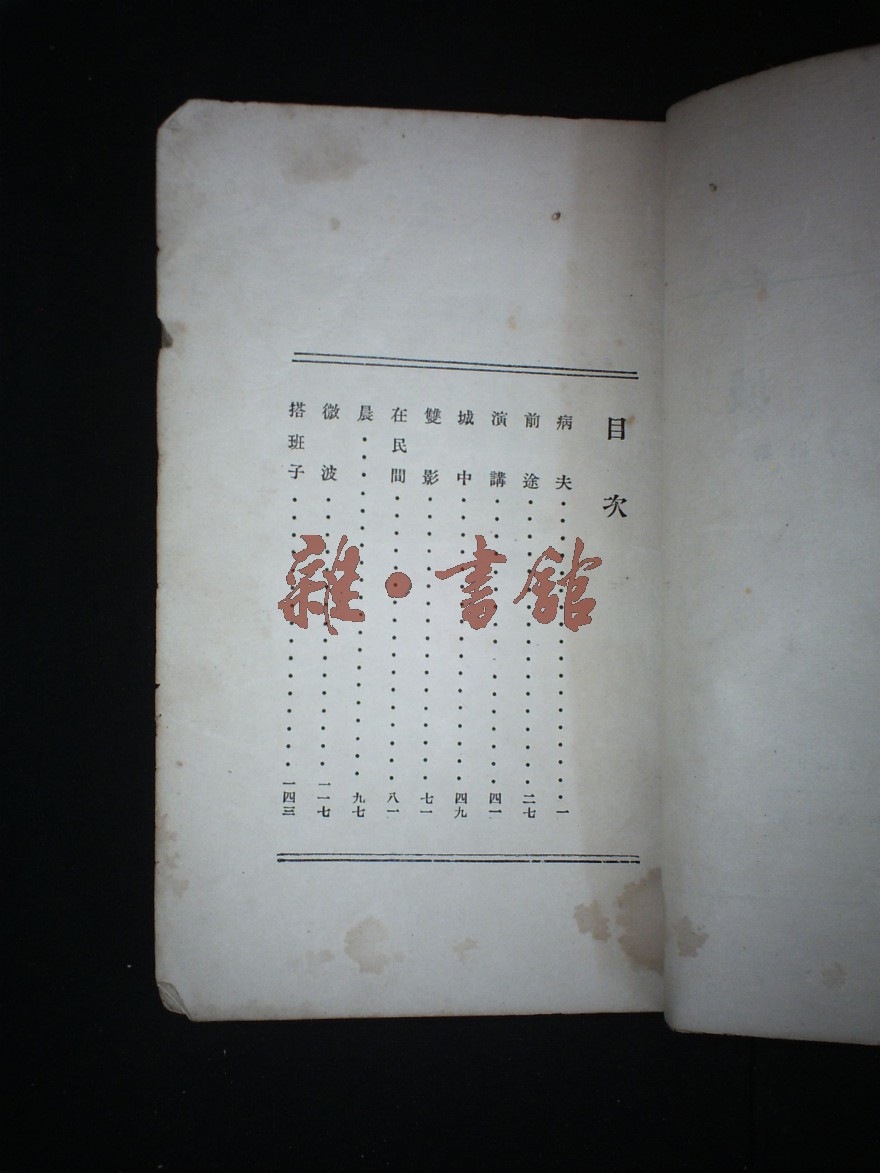 目次
病夫・・・・・・・・・・・・・・・・・一
前途・・・・・・・・・・・・・・・・・二七
演講・・・・・・・・・・・・・・・・・四一
城中・・・・・・・・・・・・・・・・・四九
雙影・・・・・・・・・・・・・・・・・七一
在民間・・・・・・・・・・・・・・・・・八一
晨・・・・・・・・・・・・・・・・・・・・九七
微波・・・・・・・・・・・・・・・・・一一七
搭班子・・・・・・・・・・・・・・・・・一四三
雜・書館